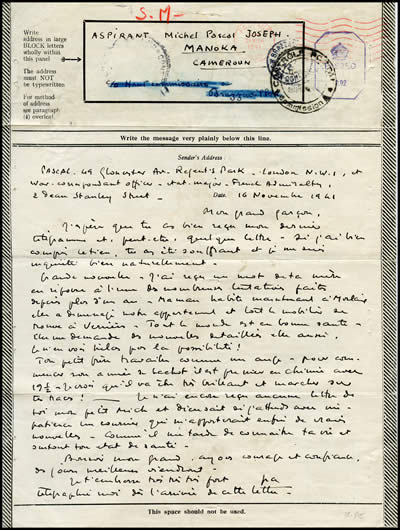 S.M-
Write
address in large
BLOCK letters
wholly within
this panel
The address
must NOT
be typewritten
For method
of address
see paragraph
(4) overleaf.
ASPIRANT Michel Pascal JOSEPH.
MANOKA
CAMEROUN
Write the message very plainly below this line.
Sender's Address:
PASCAL. 49 Gloucester Av. Regent's Park - London N.W.1, et
War-correspondant officer - état-major - French Admiralty,
2 Dean Stanley Street - Date 16 Novembre 1941
Mon grand garçon,
J'espère que tu as bien reçu mon dernier
télégramme et, peut-être, quelque lettre - Si j'ai bien
compris le tien, tu as été souffrant et je me suis
inquiété bien naturellement -
Grande nouvelle - J'ai reçu un mot de ta mère
en réponse à l'une des nombreuses tentatives faites
depuis plus d'un an - Maman habite maintenant à Morlaix
elle a déménagé notre appartement et tout le mobilier se
trouve à Verrières - Tout le monde est en bonne santé -
Elle me demande des nouvelles détaillées elle aussi,
hélas pas la possibilité!
Ton petit frère travaille comme un ange - pour com
mencer son année il est premier en chimie avec
19½ - Je crois qu'il va être très brillant et marcher sur
tes traces! Je n'ai encore reçu aucune lettre de
toi mon petit Mich et j'attends avec im-
patience un courrier qui m'apporterait enfin de vraies
nouvelles - Comme il me tarde de connaître ta vie et
surtout ton état de santé -
Bonsoir mon grand, ayons courage et confiance,
des jours meilleurs viendront -
Je t'embrasse très très très fort pa
télégraphie moi dès l'arrivée de cette lettre -
This space should not be used.